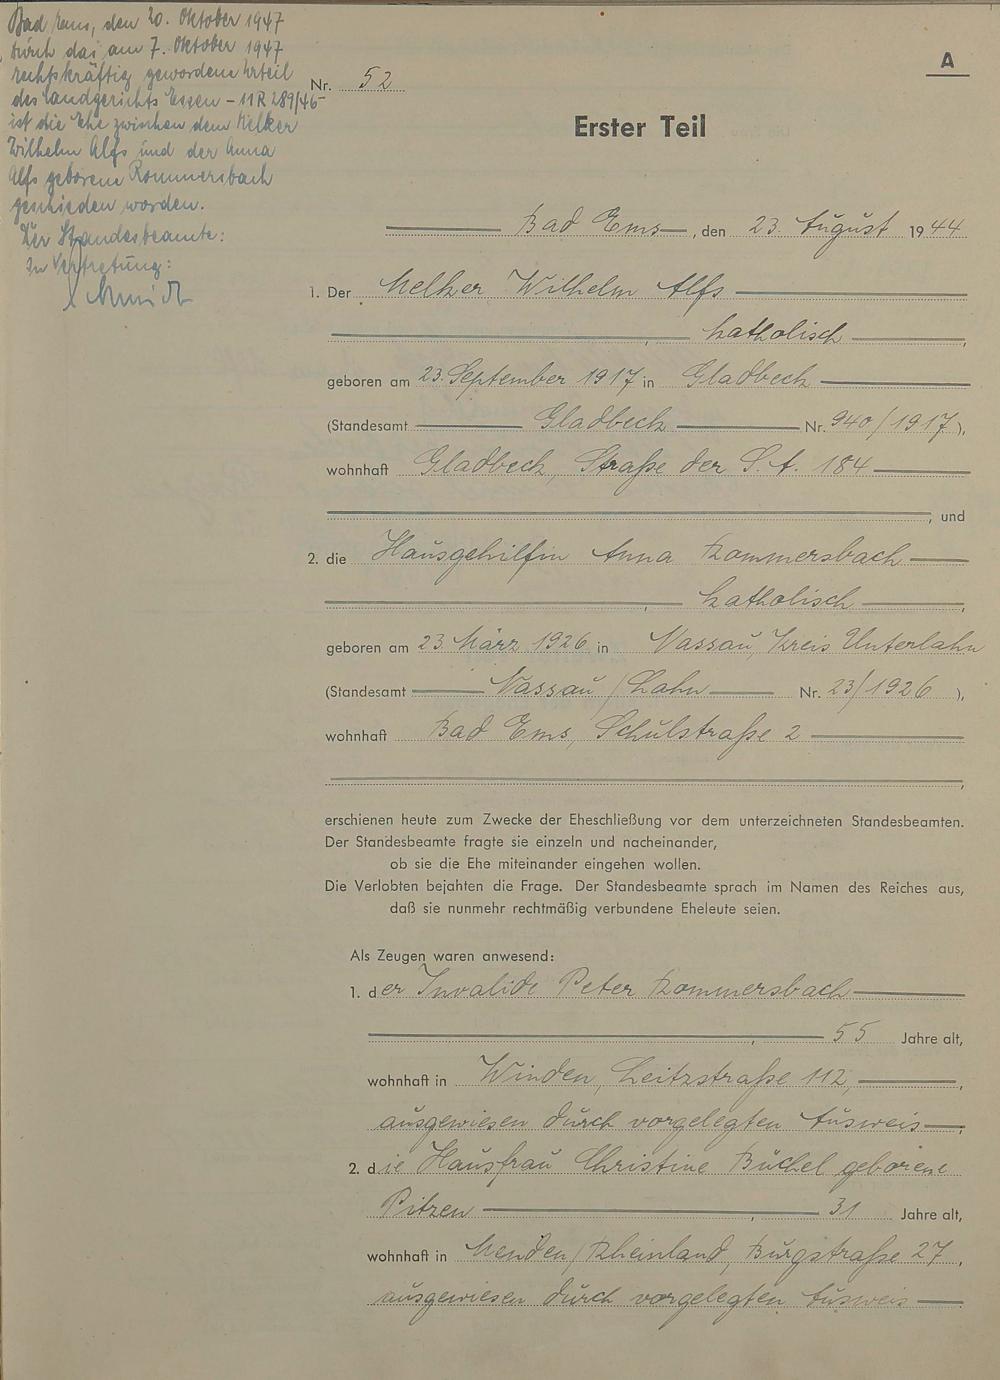 Bad Ems, den 20. Oktober 1947
Durch das am 7. Oktober 1947
rechtskräftig gewordene Urteil
des Landgerichts Essen – 11 R 289/46 –
ist die Ehe zwischen dem Melker
Wilhelm Alfs und der Anna
Alfs geborene Rommersbach
geschieden worden.
Der Standesbeamte:
In Vertretung:
Schmidt
A
Nr. 52
Erster Teil
Bad Ems, den 23. August 1944
1. Der Melker Wilhelm Alfs
, katholisch,
geboren am 23. September 1917 in Gladbeck
(Standesamt Gladbeck Nr. 940/1917),
wohnhaft Gladbeck, Straße der S.A. 184
, und
2. die Hausgehilfin Anna Rommersbach
, katholisch,
geboren am 23. März 1926 in Nassau, Kreis Unterlahn
(Standesamt Nassau/Lahn Nr. 23/1926),
wohnhaft Bad Ems, Schulstraße 2
,
erschienen heute zum Zwecke der Eheschließung vor dem unterzeichneten Standesbeamten.
Der Standesbeamte fragte sie einzeln und nacheinander,
ob sie die Ehe miteinander eingehen wollen.
Die Verlobten bejahten die Frage. Der Standesbeamte sprach im Namen des Reiches aus,
daß sie nunmehr rechtmäßig verbundene Eheleute seien.
Als Zeugen waren anwesend:
1. der Invalide Peter Rommersbach
, 55 Jahre alt,
wohnhaft in Winden, Leitzstraße 112,
ausgewiesen durch vorgelegten Ausweis,
2. die Hausfrau Christine Büchel geborene
Pitzen, 31 Jahre alt,
wohnhaft in Menden/Rheinland, Burgstraße 27,
ausgewiesen durch vorgelegten Ausweis